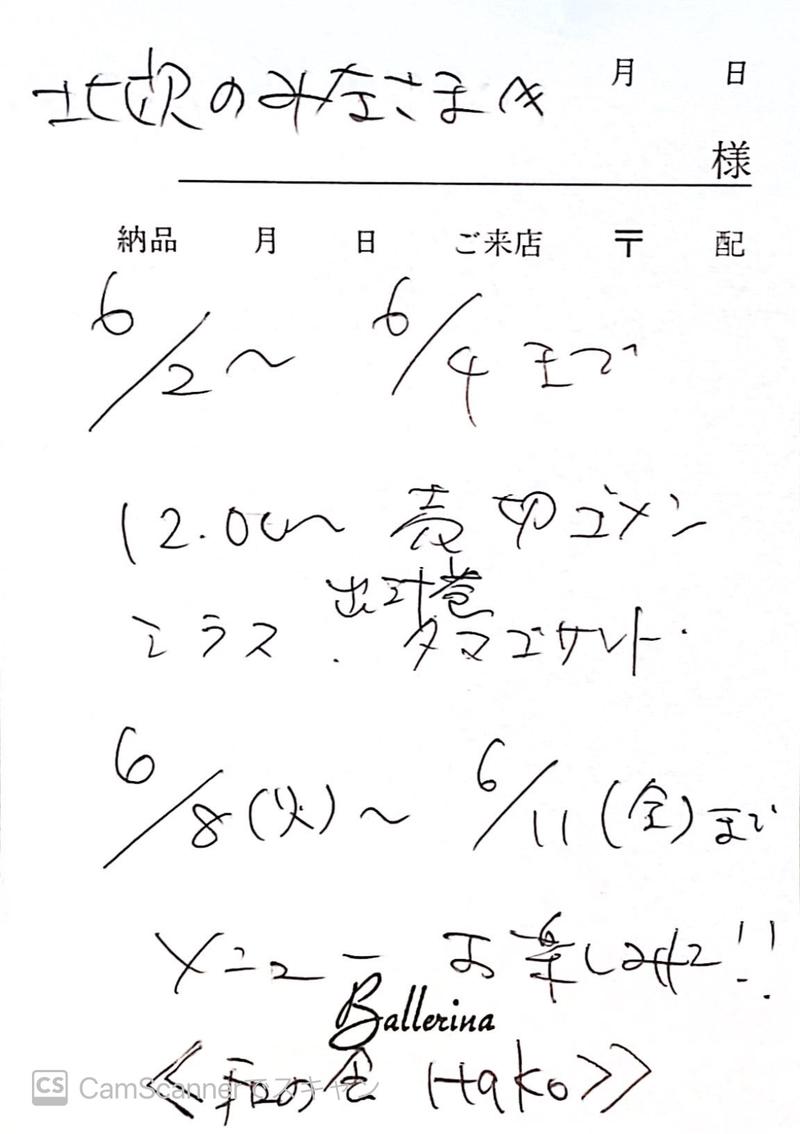 北欧のみなさまへ
月 日
様
納品 月 日 ご来店 〒 配
6/2〜 6/4まで
12.00〜 売切ゴメン
出汁巻
ミラス.タマゴサンド.
6/8(火)〜 6/11(金)まで
メニュー お楽しみに!!
Ballerina
≪和の会 Hako≫
CS CamScannerでスキャン